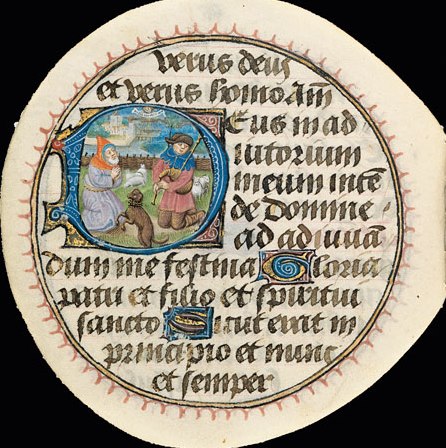 verus deus
et verus homo am̄
Deus in ad
iutorium
meum intē
de domine
ad adiuuā
dum me festina Gloria
patri et filio et spiritui
sancto Sicut erat in
principio et nunc
et semper